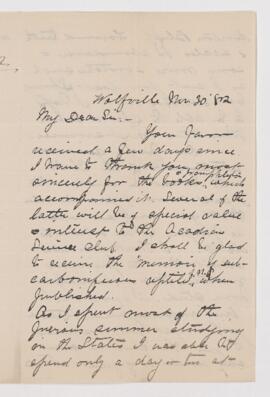 2,
Wolfville Nov. 30. '82
My Dear Sir:-
Your favor
received a few days since
I want to thank you most
sincerely for the books & pamphlets which
accompanied it. Several of the
latter will be of special value
& interest to the Acadian
Science Club. I shall be glad
to receive the "Memoir of sub-
carboniferous reptiles," when
published.
As I spent most of the
previous summer studying
in the States I was able to
spend only a day or two at-